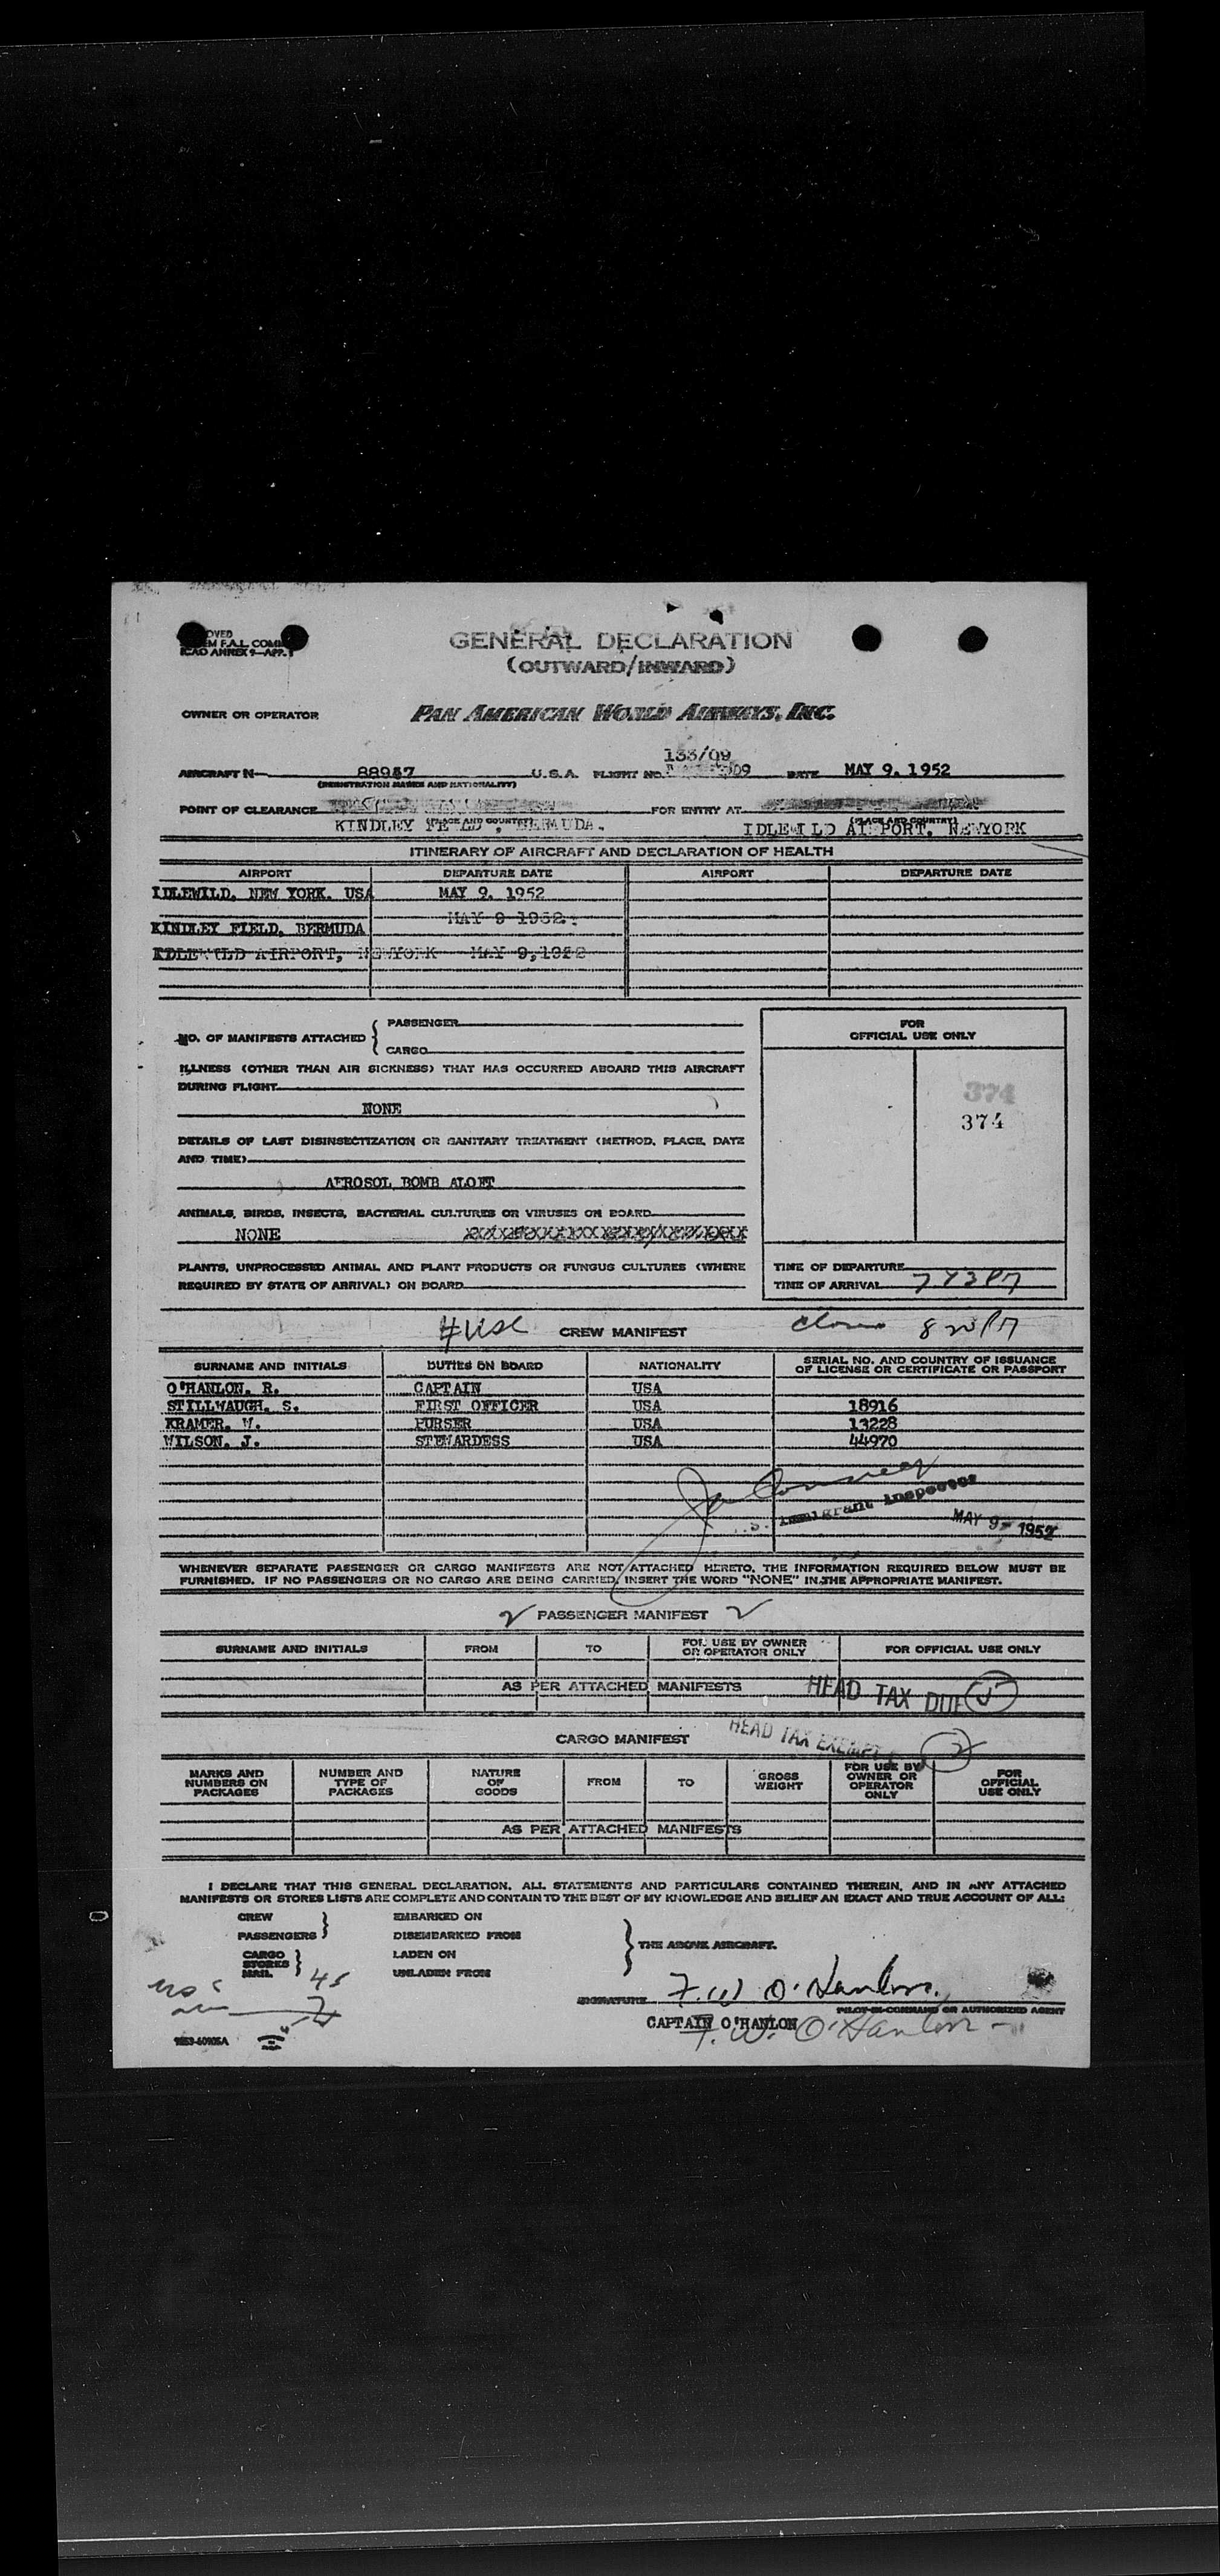 GENERAL DECLARATION
(OUTWARD/INWARD)
OWNER OR OPERATOR PAN AMERICAN WORLD AIRWAYS, INC.
133/09
AIRCRAFT N— 88957 U.S.A. FLIGHT NO. DATE MAY 9. 1952
(REGISTRATION MARKS AND NATIONALITY)
POINT OF CLEARANCE FOR ENTRY AT
(PLACE AND COUNTRY) (PLACE AND COUNTRY)
KINDLEY FIELD, BERMUDA. IDLEWILD AIRPORT, NEWYORK
ITINERARY OF AIRCRAFT AND DECLARATION OF HEALTH
AIRPORT DEPARTURE DATE AIRPORT DEPARTURE DATE
IDLEWILD, NEW YORK. USA MAY 9. 1952
KINDLEY FIELD, BERMUDA MAY 9 1952.
IDLEWILD AIRPORT, NEWYORK MAY 9,1952
NO. OF MANIFESTS ATTACHED { PASSENGER
CARGO
FOR
OFFICIAL USE ONLY
374
374
ILLNESS (OTHER THAN AIR SICKNESS) THAT HAS OCCURRED ABOARD THIS AIRCRAFT
DURING FLIGHT
NONE
DETAILS OF LAST DISINSECTIZATION OR SANITARY TREATMENT (METHOD, PLACE, DATE
AND TIME)
AEROSOL BOMB ALOFT
ANIMALS, BIRDS, INSECTS, BACTERIAL CULTURES OR VIRUSES ON BOARD
NONE
PLANTS, UNPROCESSED ANIMAL AND PLANT PRODUCTS OR FUNGUS CULTURES (WHERE
REQUIRED BY STATE OF ARRIVAL) ON BOARD
TIME OF DEPARTURE
TIME OF ARRIVAL
CREW MANIFEST
SURNAME AND INITIALS DUTIES ON BOARD NATIONALITY SERIAL NO. AND COUNTRY OF ISSUANCE
OF LICENSE OR CERTIFICATE OR PASSPORT
O'HANLON. R. CAPTAIN USA
STILLWAUGH. S. FIRST OFFICER USA 18916
KRAMER. W. PURSER USA 13228
WILSON. J. STEWARDESS USA 44970
Immigrant Inspector
MAY 9- 1952
WHENEVER SEPARATE PASSENGER OR CARGO MANIFESTS ARE NOT ATTACHED HERETO, THE INFORMATION REQUIRED BELOW MUST BE
FURNISHED. IF NO PASSENGERS OR NO CARGO ARE BEING CARRIED, INSERT THE WORD "NONE" IN THE APPROPRIATE MANIFEST.
PASSENGER MANIFEST
SURNAME AND INITIALS FROM TO FOR USE BY OWNER
OR OPERATOR ONLY FOR OFFICIAL USE ONLY
AS PER ATTACHED MANIFESTS
HEAD TAX DUE
HEAD TAX EXEMPT
CARGO MANIFEST
MARKS AND
NUMBERS ON
PACKAGES NUMBER AND
TYPE OF
PACKAGES NATURE
OF
GOODS FROM TO GROSS
WEIGHT FOR USE BY
OWNER OR
OPERATOR
ONLY FOR
OFFICIAL
USE ONLY
AS PER ATTACHED MANIFESTS
I DECLARE THAT THIS GENERAL DECLARATION, ALL STATEMENTS AND PARTICULARS CONTAINED THEREIN, AND IN ANY ATTACHED
MANIFESTS OR STORES LISTS ARE COMPLETE AND CONTAIN TO THE BEST OF MY KNOWLEDGE AND BELIEF AN EXACT AND TRUE ACCOUNT OF ALL:
CREW EMBARKED ON
PASSENGERS DISEMBARKED FROM
THE ABOVE AIRCRAFT.
CARGO LADEN ON
STORES
MAIL UNLADEN FROM
SIGNATURE F. W O'Hanlon.
PILOT-IN-COMMAND OR AUTHORIZED AGENT
CAPTAIN O'HANLON
F. W. O'Hanlon